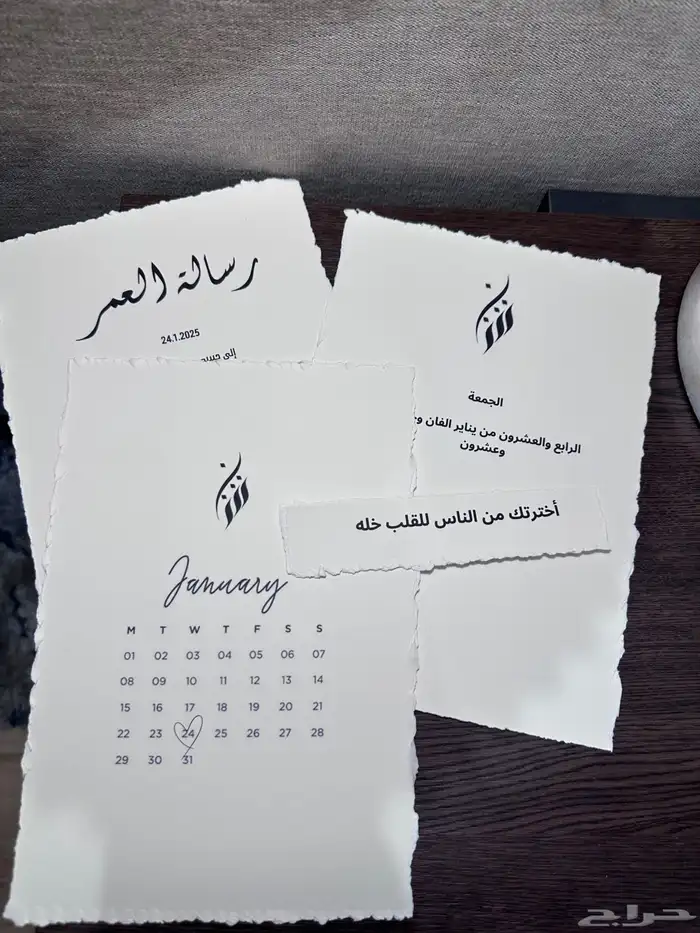 رسالة العمر
24.1.2025
إلى
الجمعة
الرابع والعشرون من يناير الفان
وعشرون
أخترتك من الناس للقلب خله
January
M T W T F S S
01 02 03 04 05 06 07
08 09 10 11 12 13 14
15 16 17 18 19 20 21
22 23 24 25 26 27 28
29 30 31
حراج